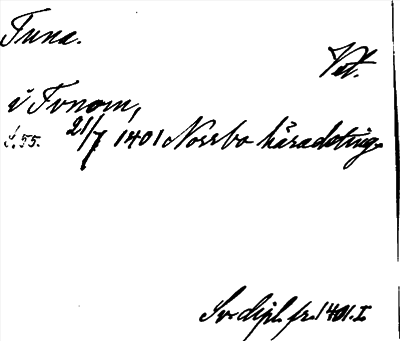 Tuna.
Vst.
i Tvnom,
s. 55. 21/7 1401 Norrbo häradsting.
Sv. dipl. fr. 1401. I.